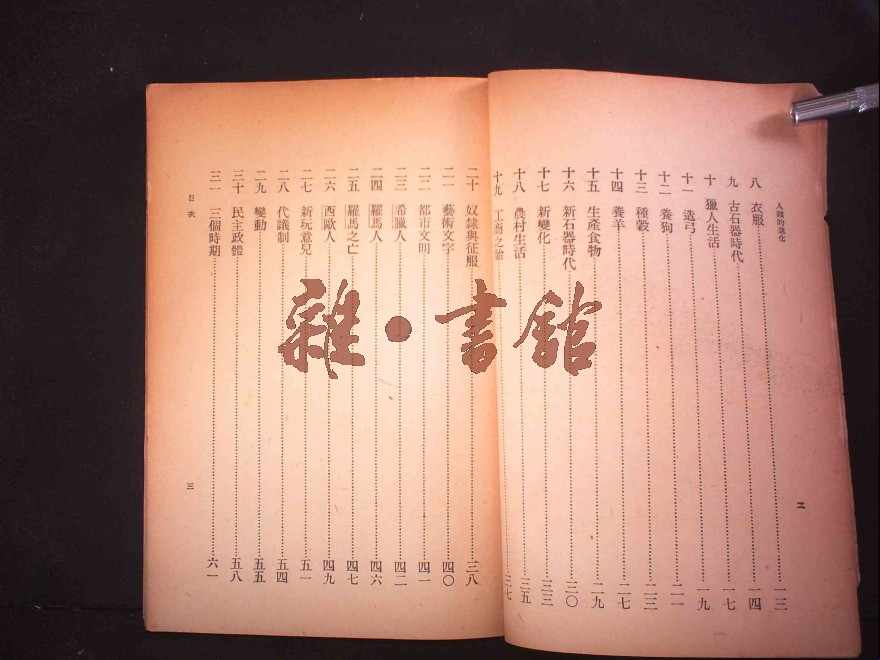 人類的進化
二
八 衣服 一三
九 古石器時代 一四
十 獵人生活 一七
十一 造弓 一九
十二 養狗 二一
十三 種穀 二三
十四 養羊 二七
十五 生產食物 二九
十六 新石器時代 三〇
十七 新變化 三三
十八 農村生活 三五
十九 工商之始 三七
二十 奴隸與征服 三八
二一 藝術文字 四〇
二二 都市文明 四一
二三 希臘人 四二
二四 羅馬人 四六
二五 羅馬之亡 四七
二六 西歐人 四九
二七 新玩意兒 五一
二八 代議制 五四
二九 變動 五五
三十 民主政體 五八
三一 三個時期 六一
目次
三
雜·書館